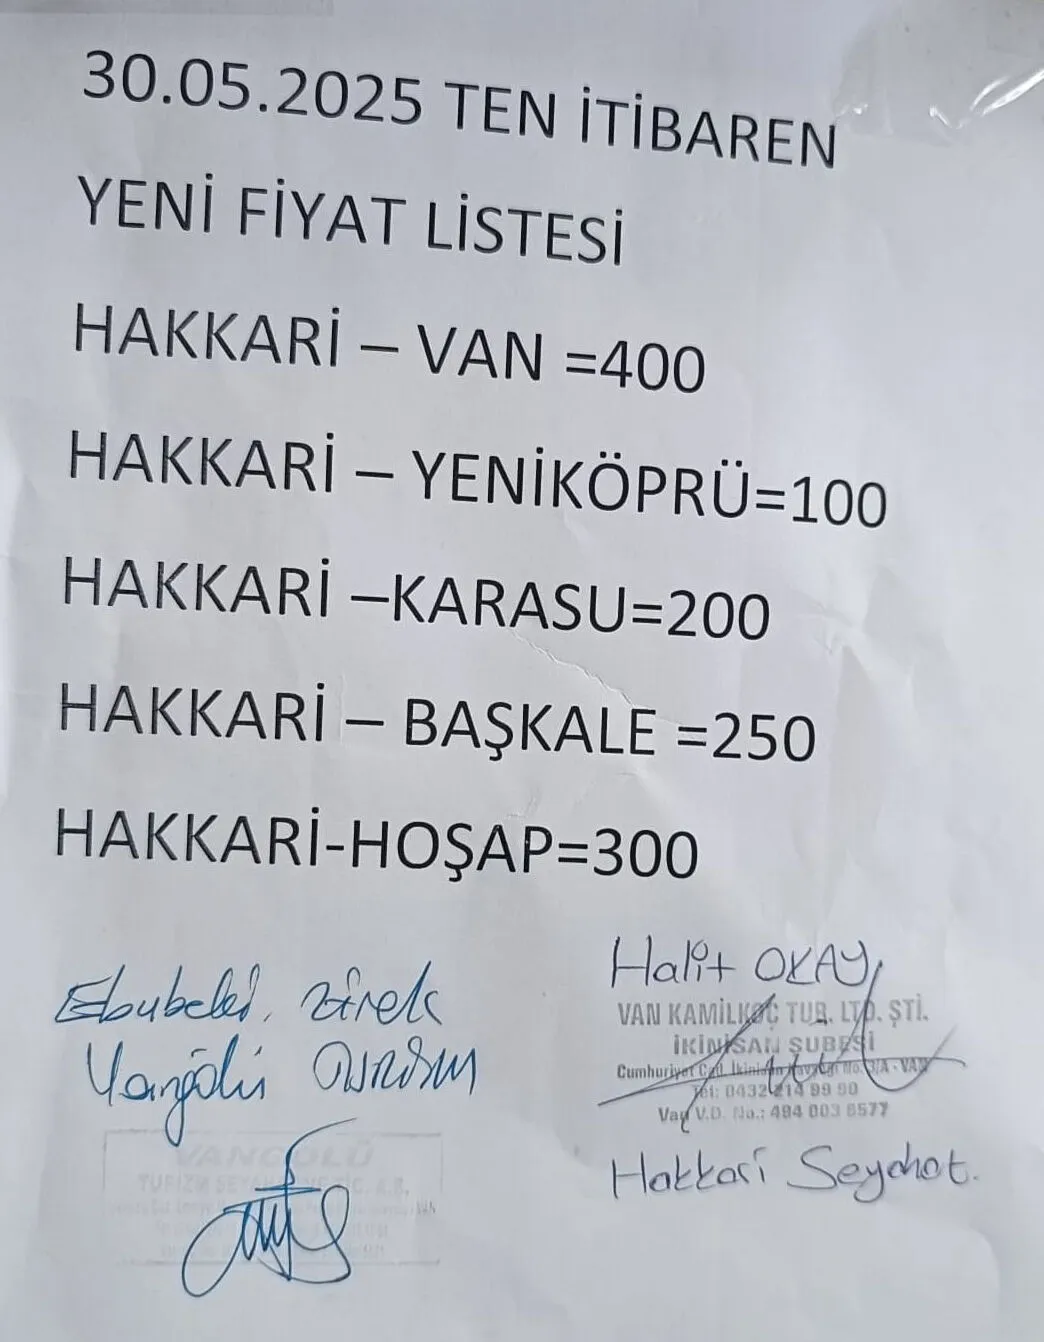 30.05.2025 TEN İTİBAREN
YENİ FİYAT LİSTESİ
HAKKARİ – VAN =400
HAKKARİ – YENİKÖPRÜ=100
HAKKARİ –KARASU=200
HAKKARİ – BAŞKALE =250
HAKKARİ-HOŞAP=300
Zirek
Vangölü
VANGÖLÜ
TURİZM
Halit OKAY
VAN KAMİLKOÇ TUR. LTD. ŞTİ.
İKİNİSAN ŞUBESİ
Cumhuriyet Cad. İkinisan No: 3/A - VAN
Tel: 0432 214 99 90
Van V.D. No.: 494 003 6577
Hakkari Seyahat.